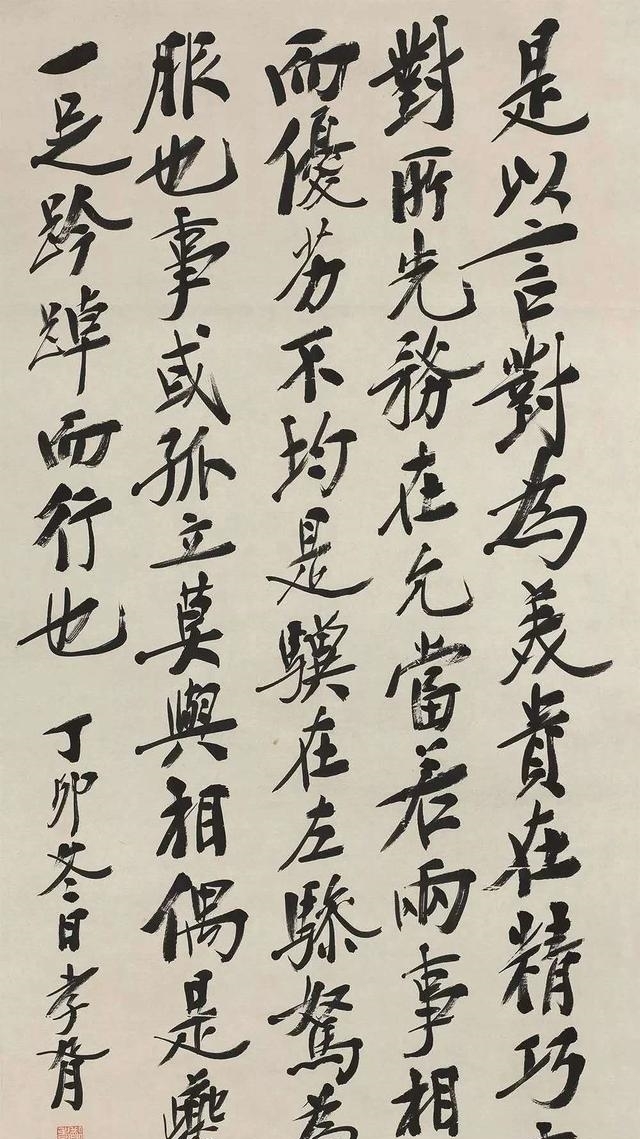 是以言對為美貴在精巧
對所先務在允當若兩事相
而優劣不均是驥在左驂駑為
服也事或孤立莫與相偶是夔
一足趻踔而行也
丁卯冬日孝胥